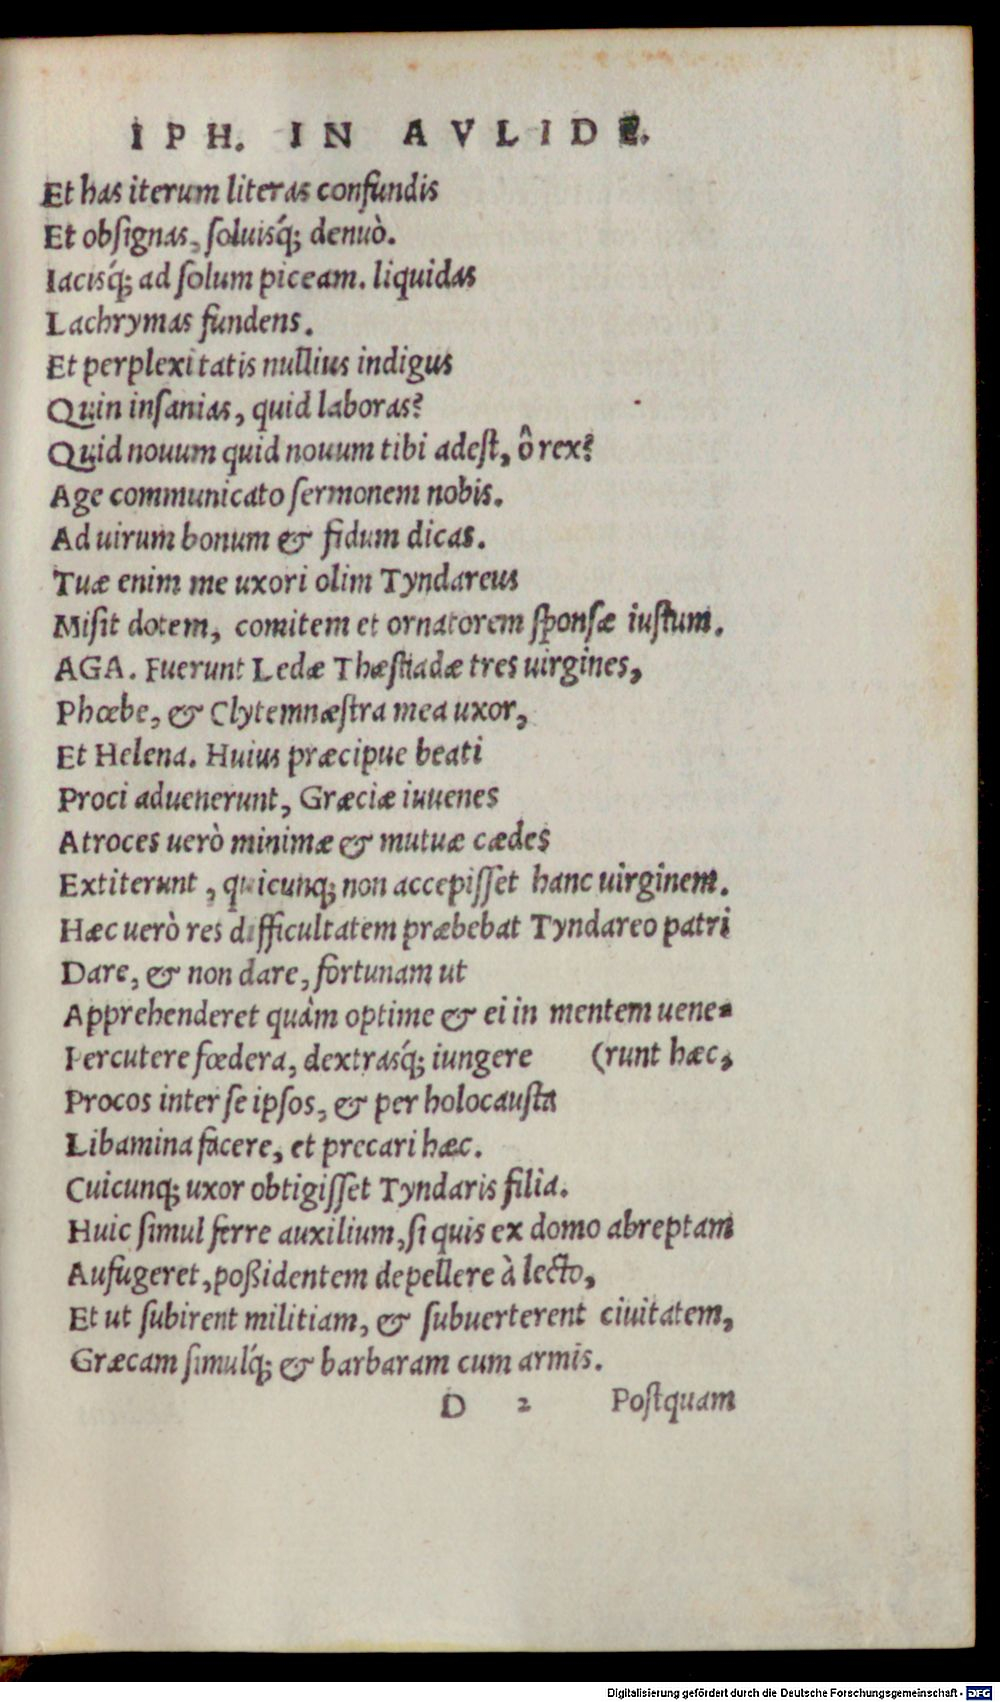 IPH. IN AVLIDE.
Et has iterum literas confundis
Et obſignas, ſoluisq́; denuò.
Iacisq́; ad ſolum piceam. liquidas
Lachrymas fundens.
Et perplexitatis nullius indigus
Quin inſanias, quid laboras?
Quid nouum quid nouum tibi adeſt, ô rex?
Age communicato ſermonem nobis.
Ad uirum bonum & fidum dicas.
Tuæ enim me uxori olim Tyndareus
Miſit dotem, comitem et ornatorem ſponſæ iuſtum.
AGA. Fuerunt Ledæ Thæſtiadæ tres uirgines,
Phœbe, & Clytemnæſtra mea uxor,
Et Helena. Huius præcipue beati
Proci aduenerunt, Græciæ iuuenes
Atroces uerò minimæ & mutuæ cædes
Extiterunt, quicunq; non accepiſſet hanc uirginem.
Hæc uerò res difficultatem præbebat Tyndareo patri
Dare, & non dare, fortunam ut
Apprehenderet quàm optime & ei in mentem uene=
Percutere fœdera, dextrasq́; iungere (runt hæc,
Procos inter ſe ipſos, & per holocauſta
Libamina facere, et precari hæc.
Cuicunq; uxor obtigiſſet Tyndaris filia.
Huic ſimul ferre auxilium, ſi quis ex domo abreptam
Aufugeret, poßidentem depellere à lecto,
Et ut ſubirent militiam, & ſubuerterent ciuitatem,
Græcam ſimulq́; & barbaram cum armis.
D 2 Poſtquam
Digitalisierung gefördert durch die Deutsche Forschungsgemeinschaft - DFG